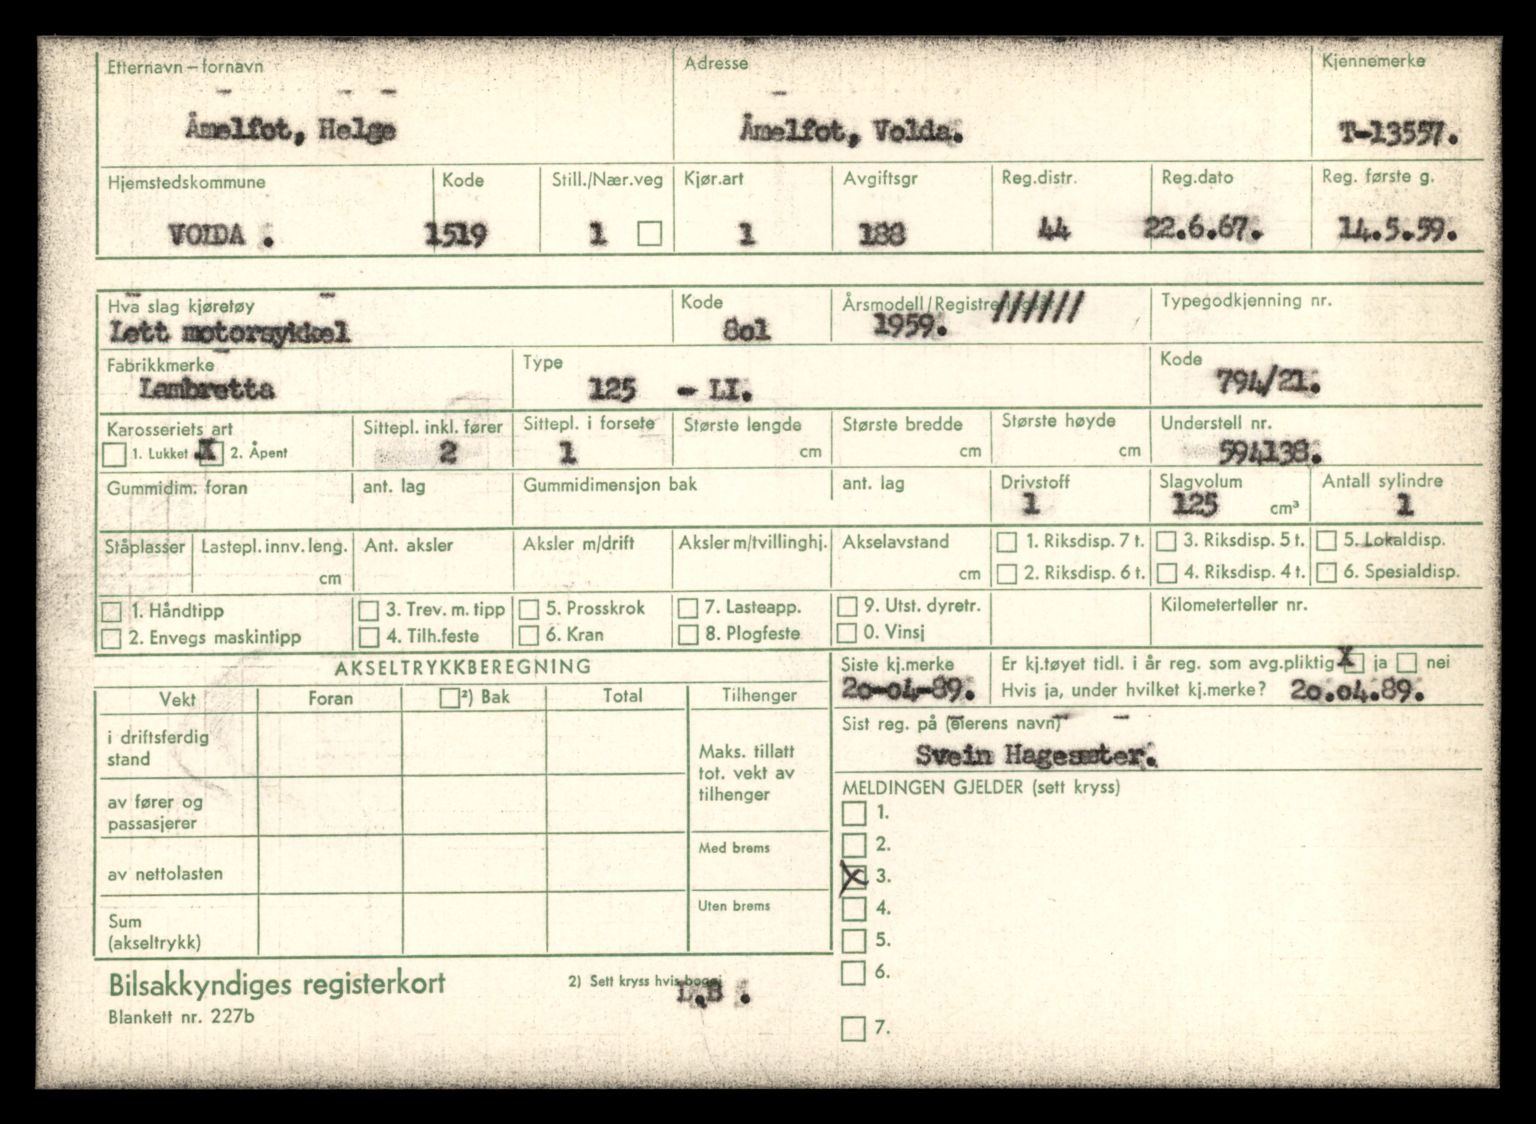 Etternavn – fornavn Adresse Kjennemerke
Åmelfot, Helge Åmelfot, Volda. T-13557.
Hjemstedskommune Kode Still./Nær.veg Kjør.art Avgiftsgr Reg.distr. Reg.dato Reg. første g.
VOLDA . 1519 1 1 188 44 22.6.67. 14.5.59.
Hva slag kjøretøy Kode Årsmodell/Registreringsår Typegodkjenning nr.
Lett motorsykkel 8o1 1959. //////
Fabrikkmerke Type Kode
Lambretta 125 - LI. 794/21.
Karosseriets art Sittepl. inkl. fører Sittepl. i forsete Største lengde Største bredde Største høyde Understell nr.
1. Lukket X 2. Åpent 2 1 cm cm cm 594138.
Gummidim. foran ant. lag Gummidimensjon bak ant. lag Drivstoff Slagvolum Antall sylindre
1 125 cm³ 1
Ståplasser Lastepl. innv. leng. Ant. aksler Aksler m/drift Aksler m/tvillinghj. Akselavstand 1. Riksdisp. 7 t. 3. Riksdisp. 5 t. 5. Lokaldisp.
cm cm 2. Riksdisp. 6 t. 4. Riksdisp. 4 t. 6. Spesialdisp.
1. Håndtipp 3. Trev. m. tipp 5. Prosskrok 7. Lasteapp. 9. Utst. dyretr. Kilometerteller nr.
2. Envegs maskintipp 4. Tilh.feste 6. Kran 8. Plogfeste 0. Vinsj
AKSELTRYKKBEREGNING Siste kj.merke Er kj.tøyet tidl. i år reg. som avg.pliktig X ja nei
Vekt Foran ²) Bak Total Tilhenger 2o-o4-89. Hvis ja, under hvilket kj.merke? 2o.o4.89.
i driftsferdig
stand
Sist reg. på (eierens navn)
Svein Hagesæter.
Maks. tillatt
tot. vekt av
tilhenger
av fører og
passasjerer
MELDINGEN GJELDER (sett kryss)
1.
Med brems 2.
av nettolasten X 3.
Uten brems 4.
Sum
(akseltrykk) 5.
6.
Bilsakkyndiges registerkort 2) Sett kryss hvis boggi
Blankett nr. 227b 7.